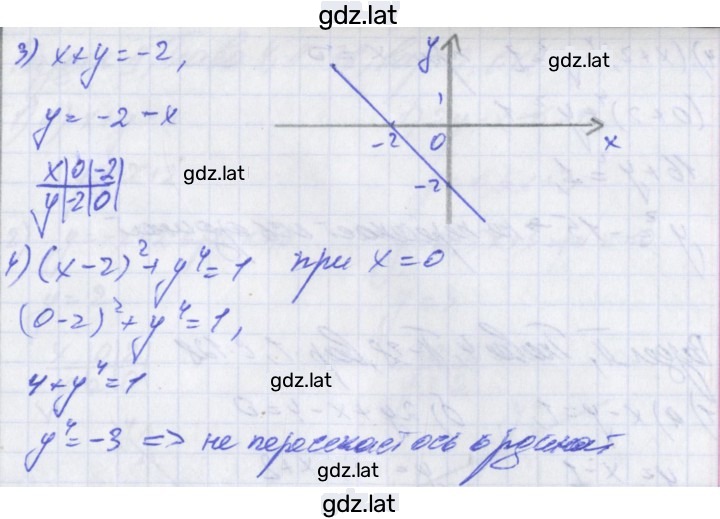 gdz.lat
3) x+y=-2,
gdz.lat
y = -2 - x
gdz.lat
x|0|-2|
y|-2|0|
y
1
-2 0 x
-2
4) (x-2)²+y⁴=1 при x=0
(0-2)²+y⁴=1,
4+y⁴=1
gdz.lat
y⁴=-3 => не пересекает ось ординат
gdz.lat
gdz.lat